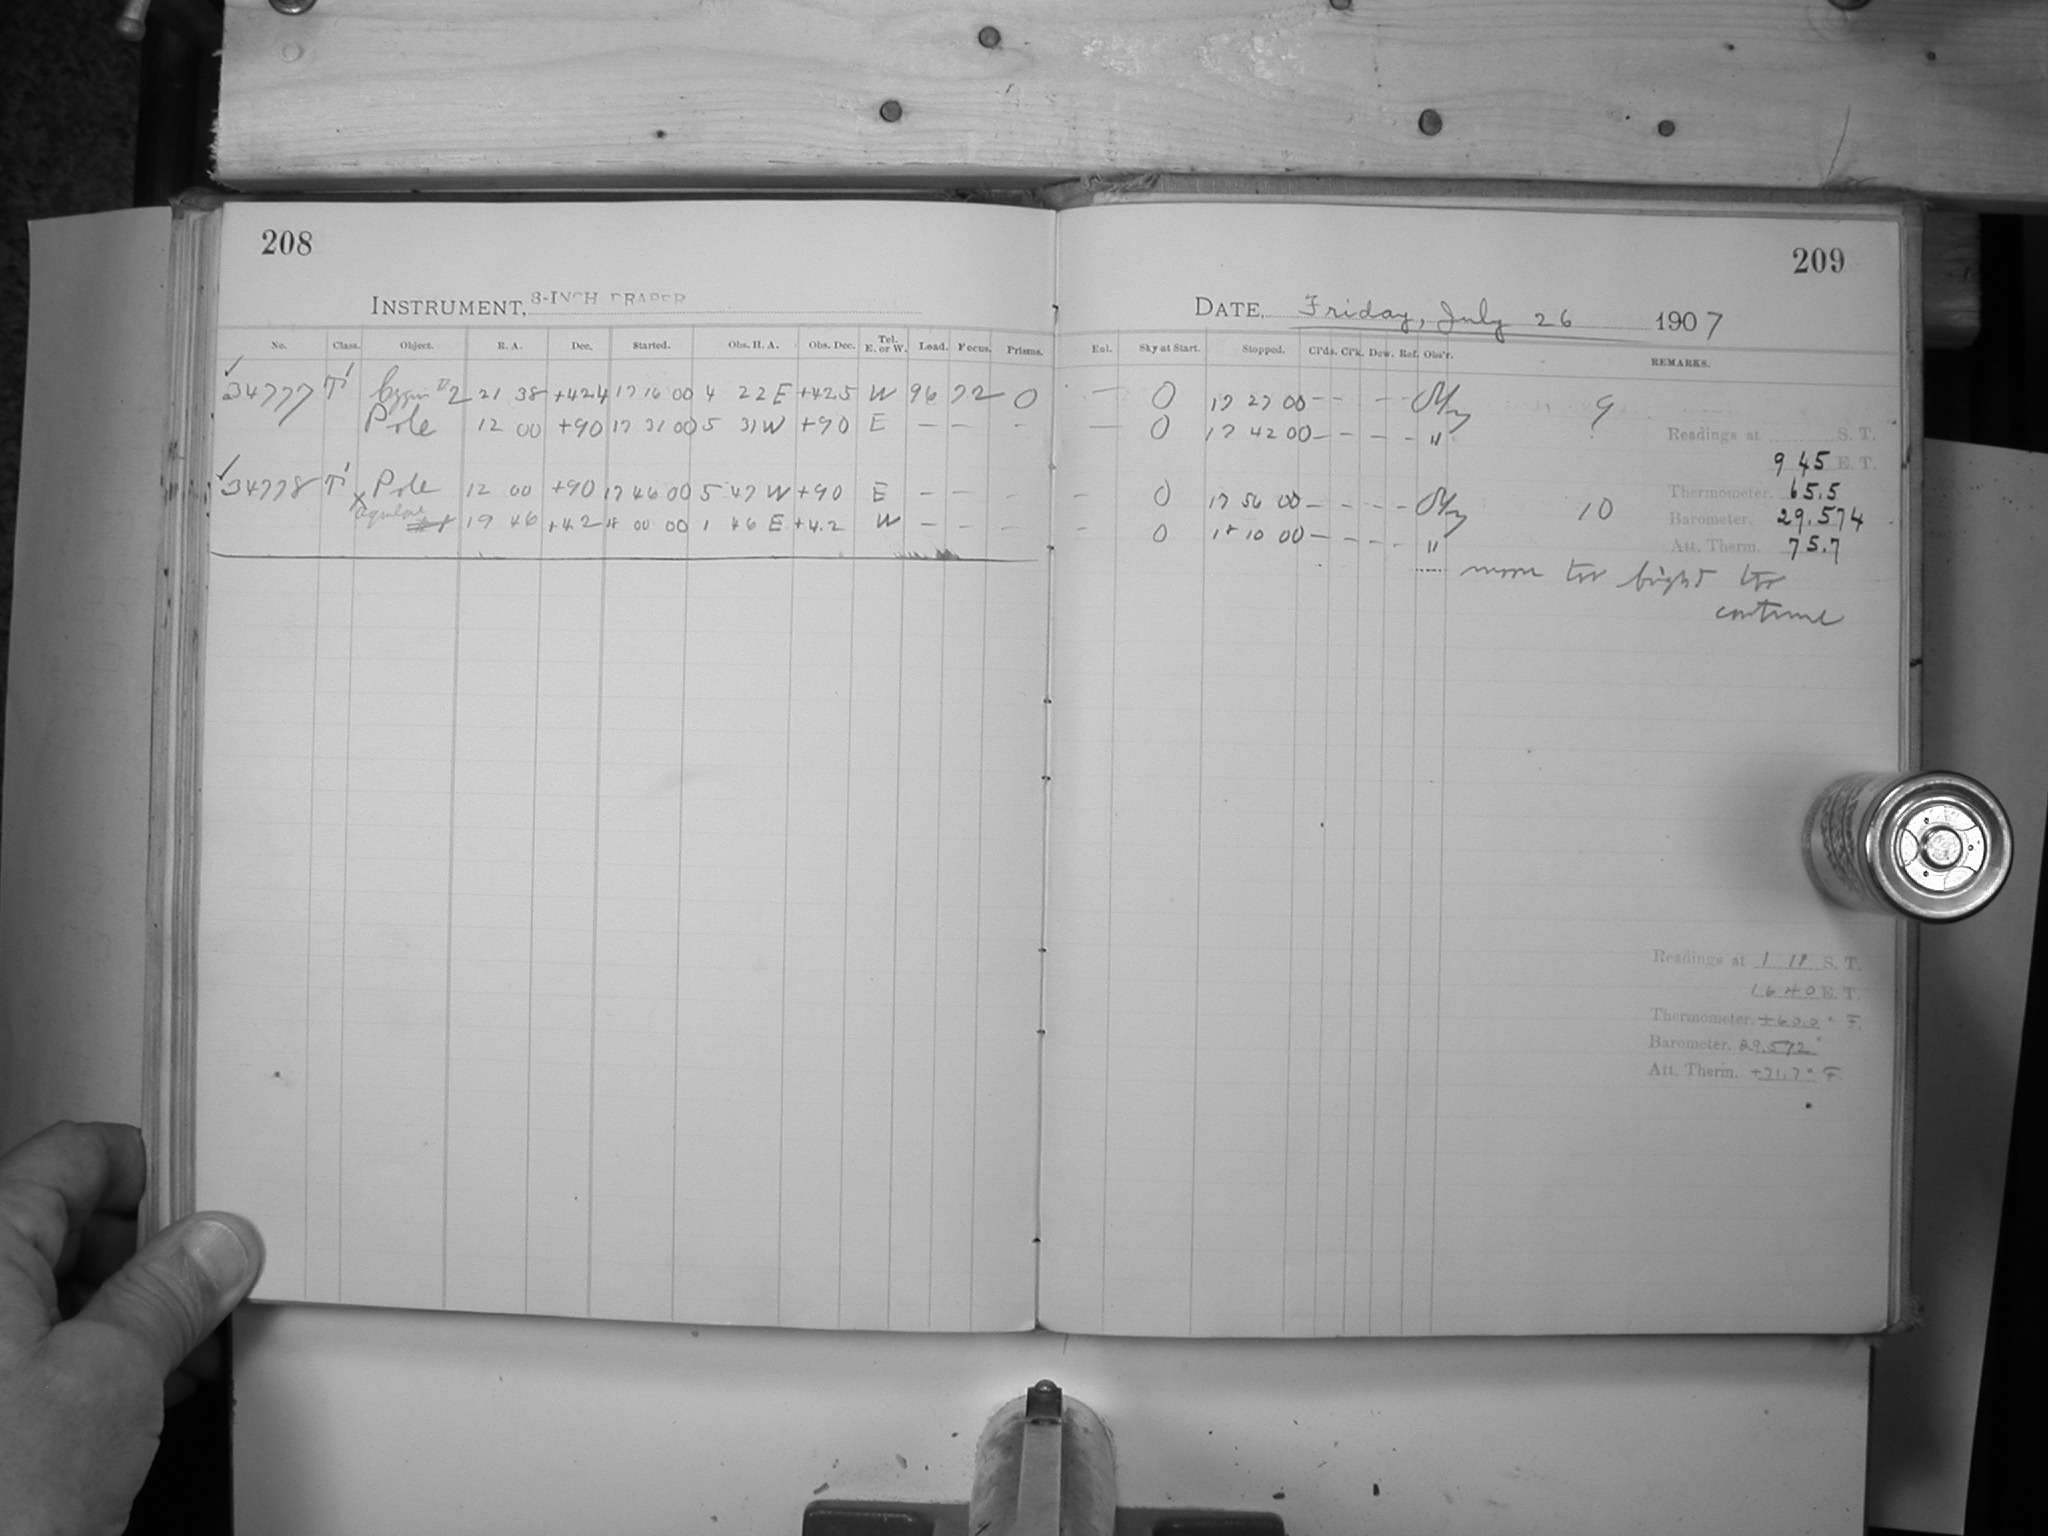 208
INSTRUMENT, 8-INCH DRAPER
No. Class. Object. R. A. Dec. Started. Obs. H. A. Obs. Dec. Tel. E. or W. Load. Focus. Prisms.
34777 T' 2 21 38 +42.4 17 16 00 4 22 E +42.5 W 96 72 0
Pole 12 00 +90 17 31 00 5 31 W +90 E — — -
34778 T' Pole 12 00 +90 17 46 00 5 47 W +90 E - - -
x Aquilae 19 46 +4.2 18 00 00 1 46 E +4.2 W - - -
209
DATE, Friday, July 26 1907
Eal. Sky at Start. Stopped. Cl'ds. Cl'k. Dew. Ref. Obs'r. REMARKS.
— 0 17 27 00 - - - - 9
— 0 17 42 00 - - - - "
Readings at S. T.
9 45 E. T.
- 0 17 56 00 - - - - 10
Thermometer. 65.5
Barometer. 29.574
- 0 18 10 00 - - - - "
Att. Therm. 75.7
moon too bright to
continue
Readings at 1 11 S. T.
16 40 E. T.
Thermometer. +60.0° F.
Barometer. 29.572"
Att. Therm. +71.7° F.